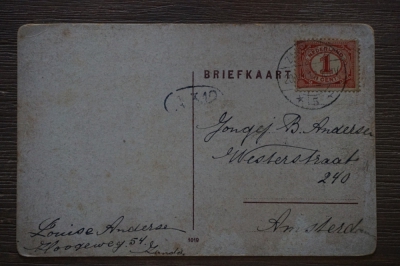 BRIEFKAART
NEDERLAND
1
CENT
5
Jongej B. Andersen
Westerstraat
240
Amsterd
Louise Andersen
Hoogeweg 54
Zandv
1919